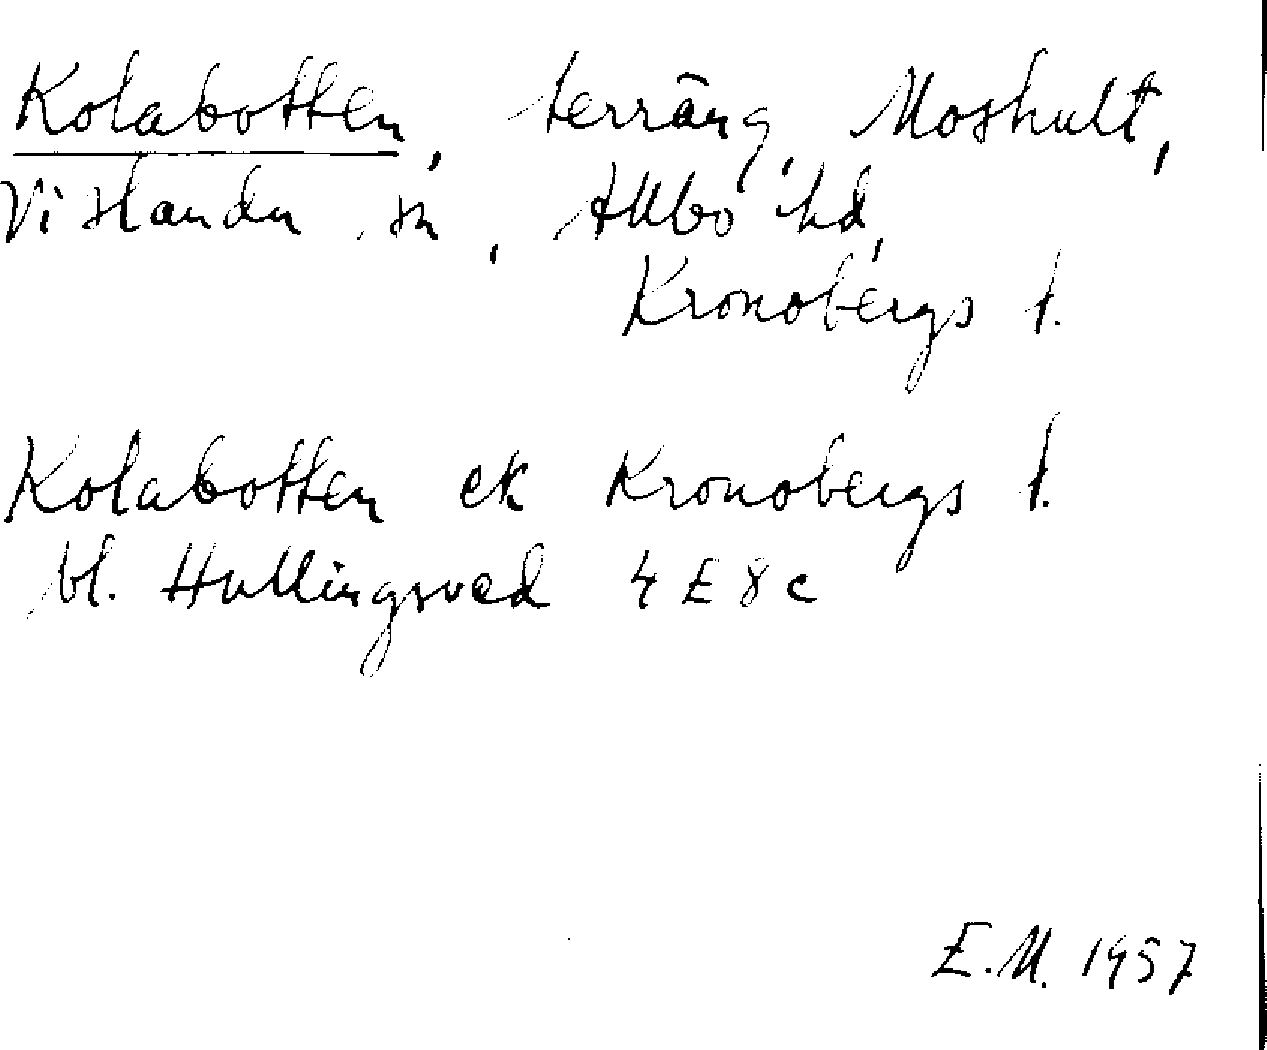 Kolabotten, terräng, Moshult,
Vislanda sn, Allbo hd,
Kronobergs l.
Kolabotten ek Kronobergs l.
bl. Hallingsved 4 E 8 c
E.M. 1957